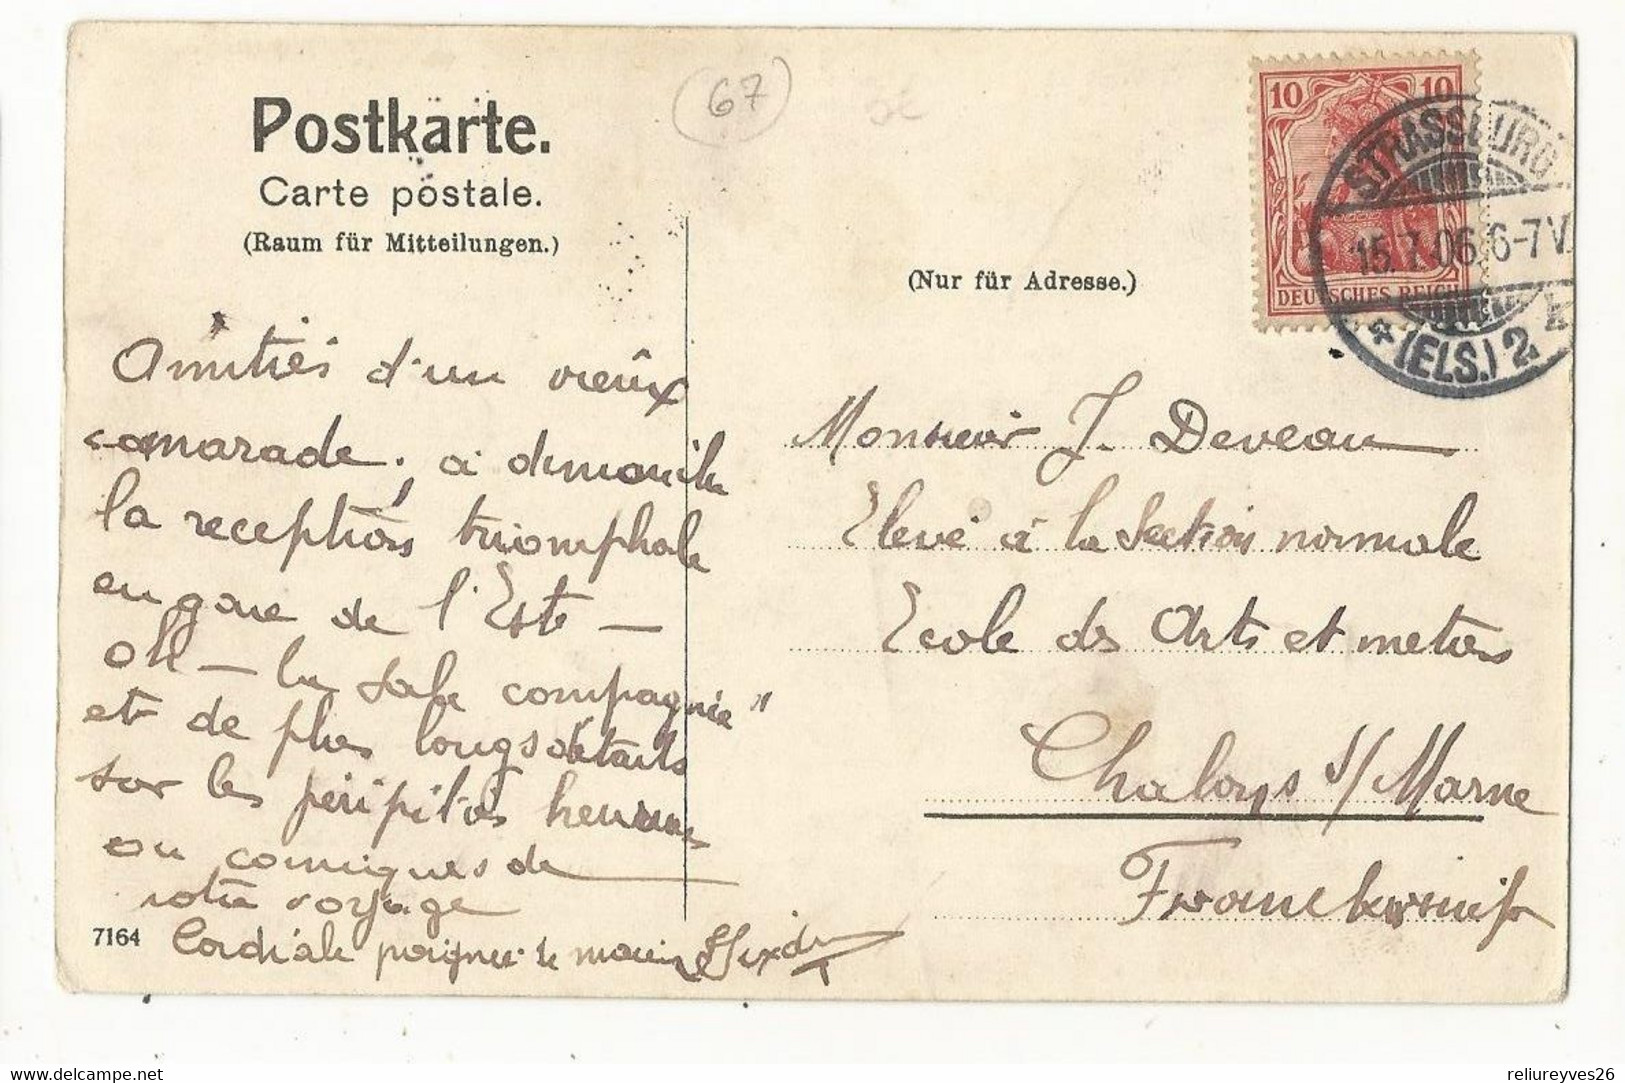 Postkarte.
Carte postale.
(Raum für Mitteilungen.)
(67)
(Nur für Adresse.)
10 10
DEUTSCHES REICH
STRASSBURG
15.7.06. 6-7 V.
* (ELS.) 2. k
Amitiés d'un vieux
camarade. à dimanche
la réception triomphale
en gare de l'Est —
oh — la sale compagnie"
et de plus longs détails
sur les péripéties
ou comiques de
votre voyage
Cordiale poignée de main
7164
Monsieur J. Deveau
Elève à la Section normale
Ecole des Arts et metiers
Chalons s/ Marne
reliureyves26